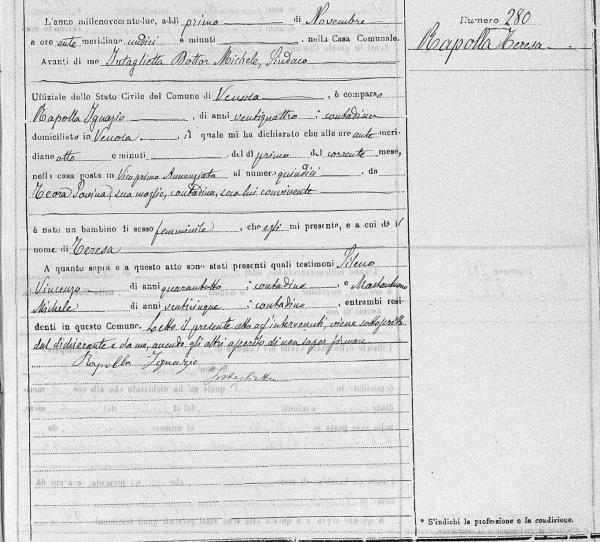 Numero 280
Rapolla Teresa
L'anno millenovecento due, addì primo di Novembre
a ore ante meridiane undici e minuti , nella Casa Comunale.
Avanti di me Intaglietta Dottor Michele, Sindaco
Uffiziale dello Stato Civile del Comune di Venosa , è comparso
Rapolla Ignazio , di anni ventiquattro : contadino
domiciliato in Venosa , il quale mi ha dichiarato che alle ore ante meri-
diane otto e minuti del dì primo del corrente mese,
nella casa posta in Vico primo Annunziata al numero quindici , da
Teora Savina, sua moglie, contadina, seco lui convivente
è nato un bambino di sesso femminile , che egli mi presenta, e a cui dà il
nome di Teresa
A quanto sopra e a questo atto sono stati presenti quali testimoni Sileno
Vincenzo di anni quarantotto : contadino , e
Michele di anni venticinque : contadino , entrambi resi-
denti in questo Comune. Letto il presente atto agl'intervenuti, viene sottoscritto
dal dichiarante e da me, avendo gli altri asserito di non saper firmare
Rapolla Ignazio
Intaglietta
* S'indichi la professione o la condizione.